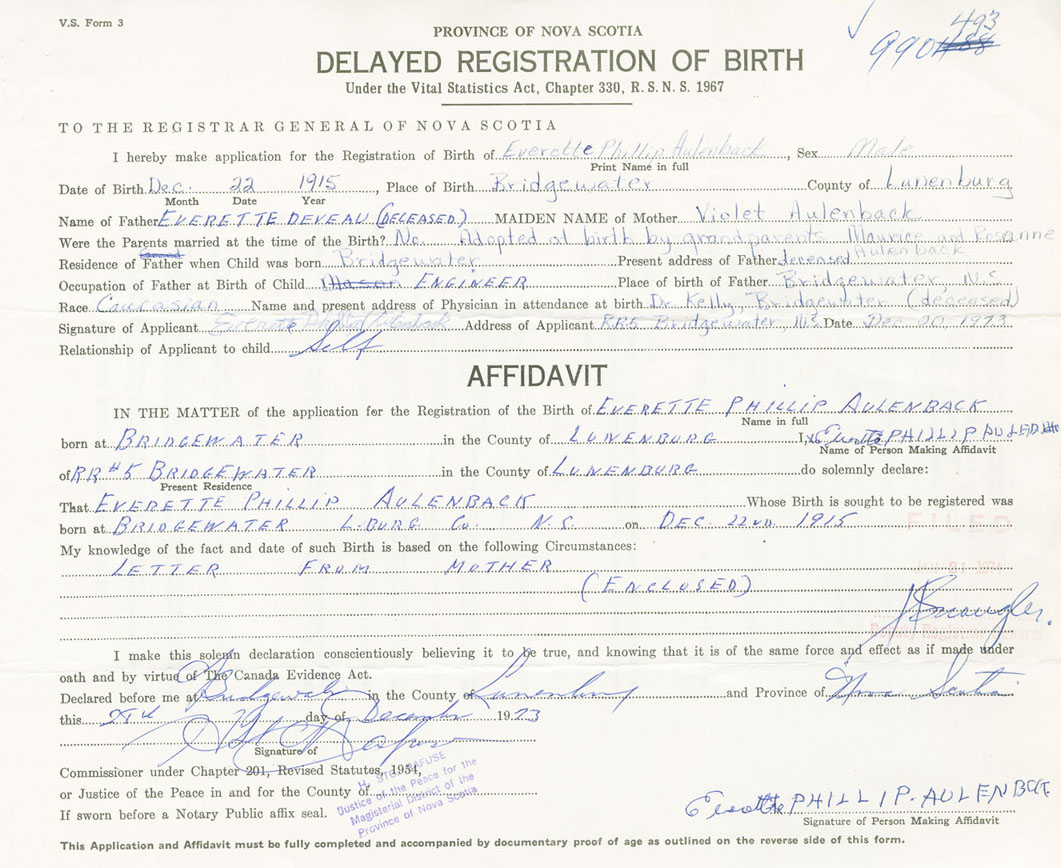 V.S. Form 3
PROVINCE OF NOVA SCOTIA
493
990 488
DELAYED REGISTRATION OF BIRTH
Under the Vital Statistics Act, Chapter 330, R.S.N.S. 1967
TO THE REGISTRAR GENERAL OF NOVA SCOTIA
I hereby make application for the Registration of Birth of Everette Phillip Aulenback, Sex Male
Print Name in full
Date of Birth Dec. 22 1915, Place of Birth Bridgewater County of Lunenburg
Month Date Year
Name of Father EVERETTE DEVEAU (DELEASED) MAIDEN NAME of Mother Violet Aulenback
Were the Parents married at the time of the Birth? No. Adopted at birth by grandparents Maurice and Roseanne Aulenback
Residence of Father when Child was born Bridgewater Present address of Father deceased
Occupation of Father at Birth of Child Mason ENGINEER Place of birth of Father Bridgewater, N.S.
Race Caucasian Name and present address of Physician in attendance at birth Dr. Kelly, Bridgewater (deceased)
Signature of Applicant Everette Phillip Aulenback Address of Applicant RR5 Bridgewater, N.S. Date Dec-20-1973
Relationship of Applicant to child Self
AFFIDAVIT
IN THE MATTER of the application for the Registration of the Birth of EVERETTE PHILLIP AULENBACK
Name in full
born at BRIDGEWATER in the County of LUNENBURG I, Everette PHILLIP
Name of Person Making Affidavit
of RR#5 BRIDGEWATER in the County of LUNENBURG do solemnly declare:
Present Residence
That EVERETTE PHILLIP AULENBACK Whose Birth is sought to be registered was
born at BRIDGEWATER L-BURG Co. N.S. on DEC. 22ND. 1915
FILED
My knowledge of the fact and date of such Birth is based on the following Circumstances:
LETTER FROM MOTHER
(ENCLOSED)
Deputy Registrar General
I make this solemn declaration conscientiously believing it to be true, and knowing that it is of the same force and effect as if made under
oath and by virtue of The Canada Evidence Act.
Declared before me at Bridgewater in the County of Lunenburg and Province of Nova Scotia
this day of December 1973
Signature of
Commissioner under Chapter 201, Revised Statutes, 1954,
or Justice of the Peace in and for the County of
If sworn before a Notary Public affix seal.
Justice of the Peace for the
Magisterial District of the
Province of Nova Scotia
Everette PHILLIP. AULENBACK
Signature of Person Making Affidavit
This Application and Affidavit must be fully completed and accompanied by documentary proof of age as outlined on the reverse side of this form.